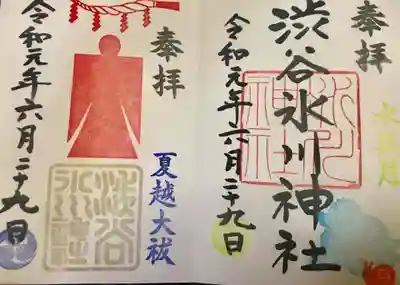 奉拝
水無月
渋谷氷川神社
令和元年六月二十九日
奉拝
夏越大祓
渋谷氷川神社
令和元年六月二十九日